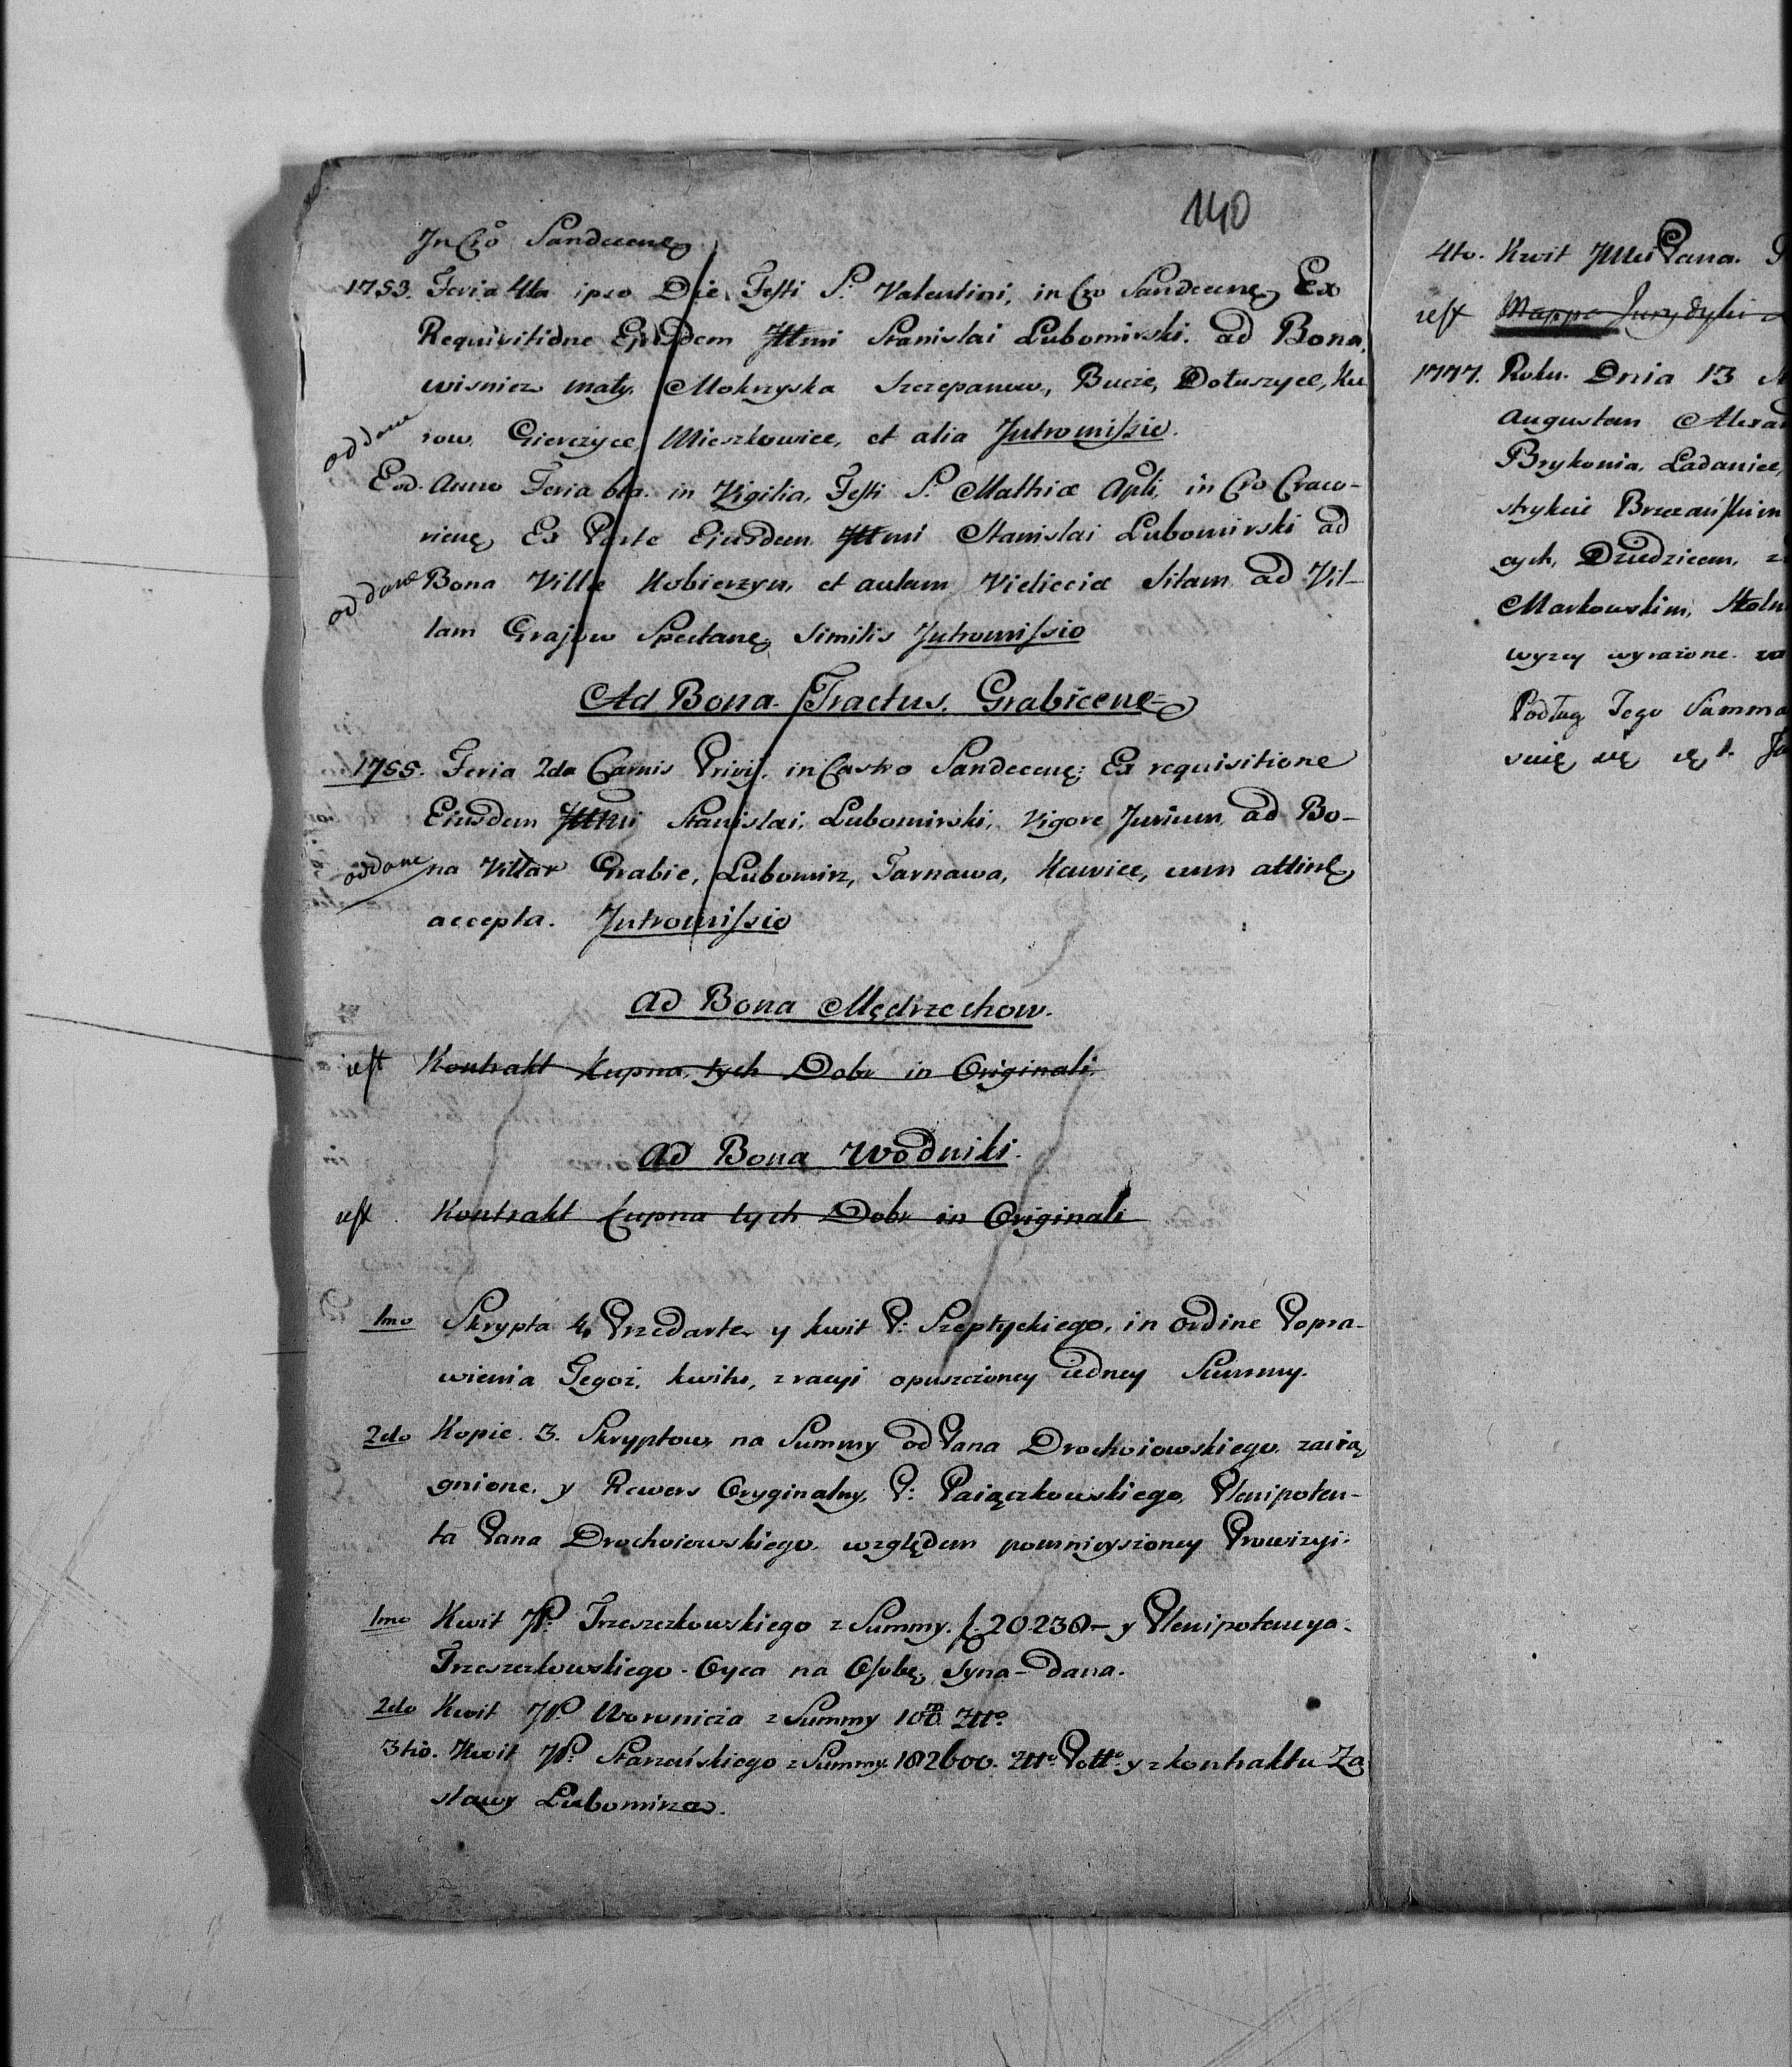 140
In Cro Sandecen̄
1753. Feria 4ta ipso Die Festi S. Valentini, in Cro Sandecen̄, Ex
Requisitione Ejusdem Illmi Stanislai Lubomirski. ad Bona,
wisnicz mały, Mokrzyska Szczepanow, Bucze, Dołuszyce, Ku
oddane row, Gierczyce, Mieszkowice, et alia Intromissio.
Eod. Anno Feria 6ta. in Vigilia, Festi S. Mathiæ Apli, in Cro Craco-
vien̄, Ex Parte Ejusdem Illmi Stanislai Lubomirski ad
oddane Bona Villæ Kobierzyn, et aulam Vieliciæ Sitam ad Vil-
lam Grajow Spectan̄, Similis Intromissio
Ad Bona Tractus Grabicen̄
1755. Feria 2da Carnis Privij, in Castro Sandecen̄; Ex requisitione
Eiusdem Illmi Stanislai, Lubomirski, Vigore Jurium, ad Bo-
oddane na Villar Grabie, Lubomirz, Tarnawa, Kawice, cum attin̄,
accepta. Intromissio
Ad Bona Mędrzechow.
iest Kontrakt Kupna, tych Dobr in Originali
Ad Bona Wodniki.
iest Kontrakt Kupna tych Dobr in Originali
1mo Skrypta 4, Przedarte, y kwit P: Szeptyckiego, in ordine Popra-
wienia Tegoż, kwitu, z racyi opuszczoney iedney Summy.
2do Kopie 3. Skryptow, na Summy od Pana Drochoiowskiego zacią
gnione, y Rewers Oryginalny, P: Paiączkowskiego, Plenipoten-
ta Pana Drochoiewskiego, względem pomnieyszoney Prowizyi.
1mo Kwit JP. Trzeszczkowskiego z Summy. f. 20.230 – y Plenipotencya.
Trzeszczkowskiego Oyca na Osobę, Syna – dana.
2do Kwit JP. Woronicza z Summy 100 m Złło
3tio. Kwit JP. Starzeńskiego z Summy 182600. Złło. Poll. y z kontraktu Za
stawy Lubomirza.
4to. Kwit JMci Pana.
iest Mappa Jurydyki
1777. Roku. Dnia 13
Augustem
Brykonia, Ladaniec,
strykcie Brzezańskim
cych, Dziedzicem,
Markowskim,
wyzey wyrażone.
Podług Tego Samma